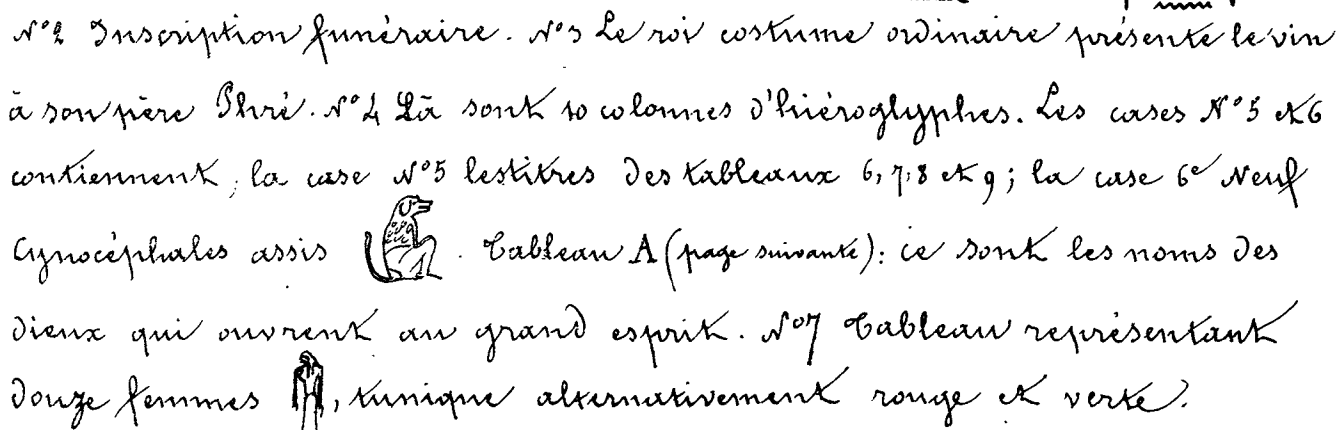 N°2 Inscription funéraire. N°3 Le roi costume ordinaire présente le vin
à son père Phré. N°4 Là sont 10 colonnes d'hiéroglyphes. Les cases N°5 et 6
contiennent, la case N°5 les titres des tableaux 6, 7, 8 et 9; la case 6e Neuf
Cynocéphales assis . Tableau A (page suivante): ce sont les noms des
dieux qui ouvrent au grand esprit. N°7 Tableau représentant
douze femmes , tunique alternativement rouge et verte.